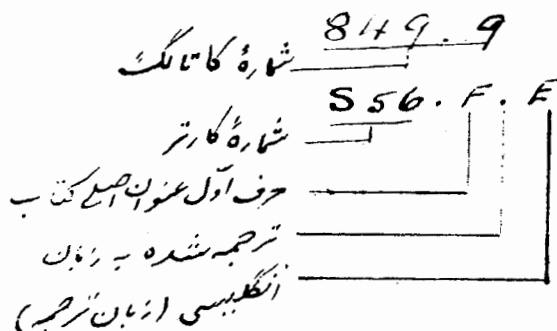 849.9
شمارهٔ کاتالگ
S56.F.E
شمارهٔ کارتر
حرف اول عنوان اصلی کتاب
ترجمه شده به زبان
انگلیسی (زبان ترجمه)